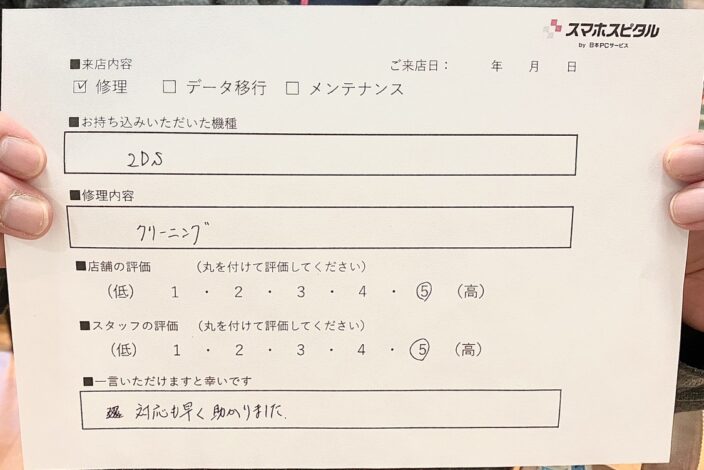 スマホスピタル
by 日本PCサービス
■来店内容
ご来店日： 年 月 日
☑ 修理 □ データ移行 □ メンテナンス
■お持ち込みいただいた機種
2DS
■修理内容
クリーニング
■店舗の評価 （丸を付けて評価してください）
（低） 1 ・ 2 ・ 3 ・ 4 ・ ⑤ （高）
■スタッフの評価 （丸を付けて評価してください）
（低） 1 ・ 2 ・ 3 ・ 4 ・ ⑤ （高）
■一言いただけますと幸いです
対応も早く助かりました.